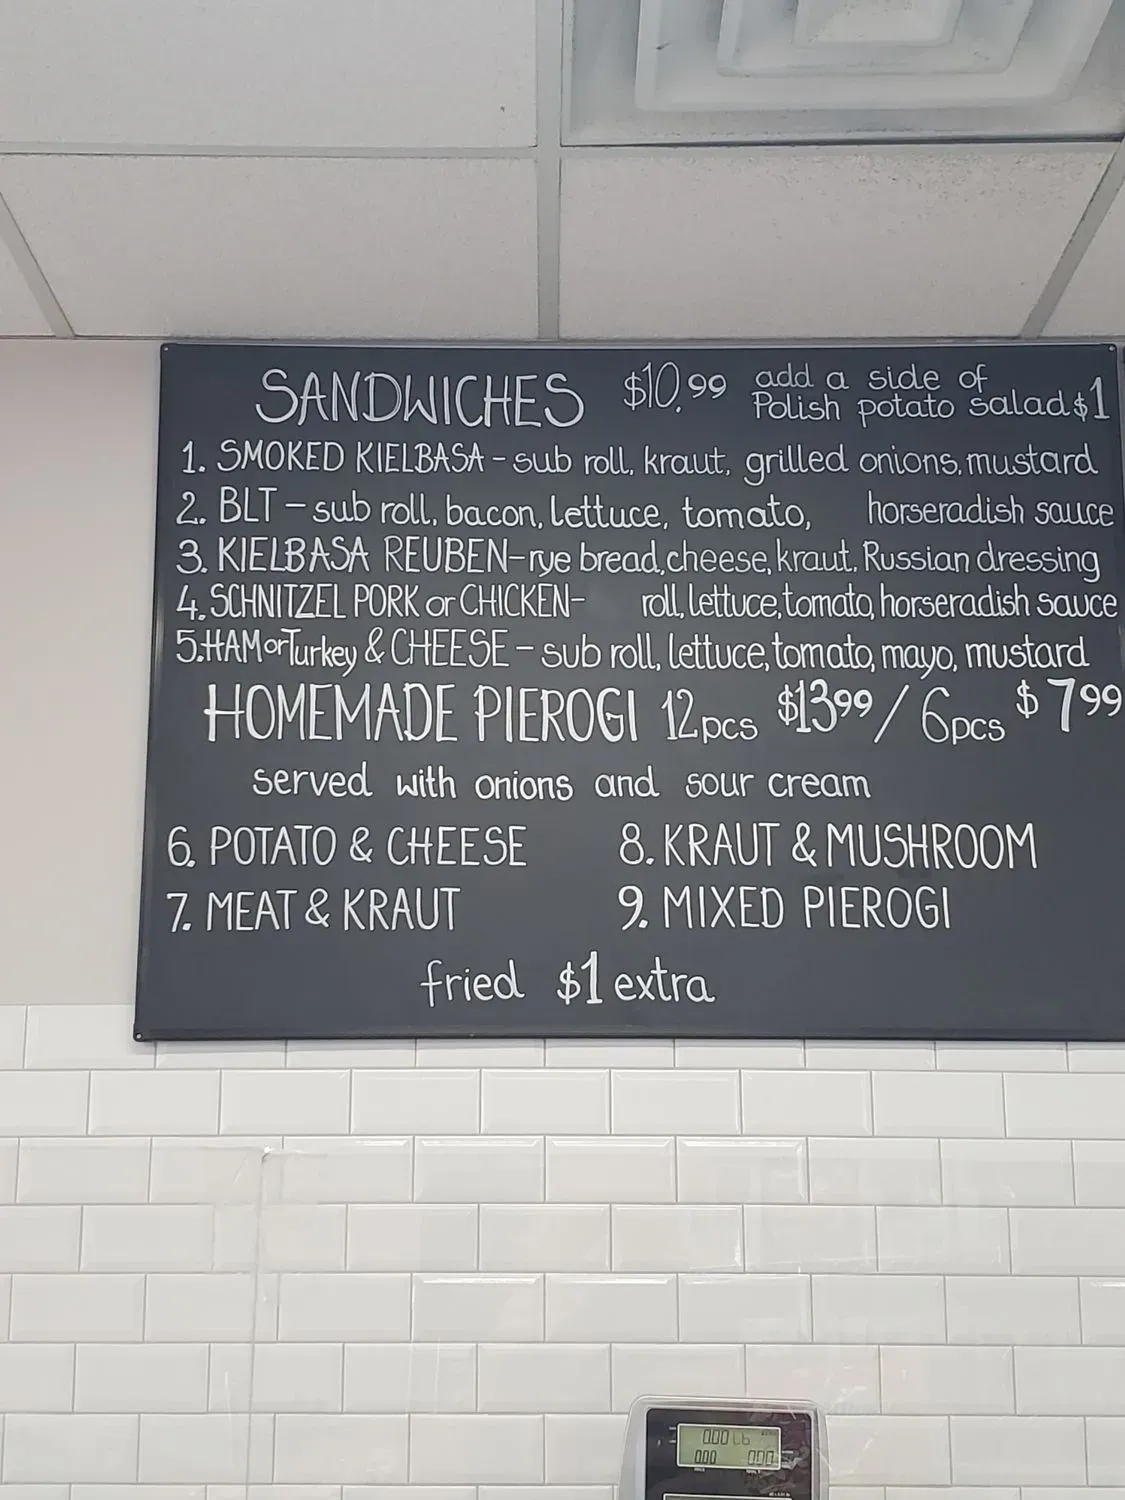 SANDWICHES $10.99 add a side of
Polish potato salad $1
1. SMOKED KIELBASA - sub roll, kraut, grilled onions, mustard
2. BLT - sub roll, bacon, lettuce, tomato, horseradish sauce
3. KIELBASA REUBEN - rye bread, cheese, kraut, Russian dressing
4. SCHNITZEL PORK or CHICKEN - roll, lettuce, tomato, horseradish sauce
5. HAM or Turkey & CHEESE - sub roll, lettuce, tomato, mayo, mustard
HOMEMADE PIEROGI 12pcs $13.99 / 6pcs $7.99
served with onions and sour cream
6. POTATO & CHEESE
7. MEAT & KRAUT
8. KRAUT & MUSHROOM
9. MIXED PIEROGI
fried $1 extra
0.00 Lb
0.00 0.00